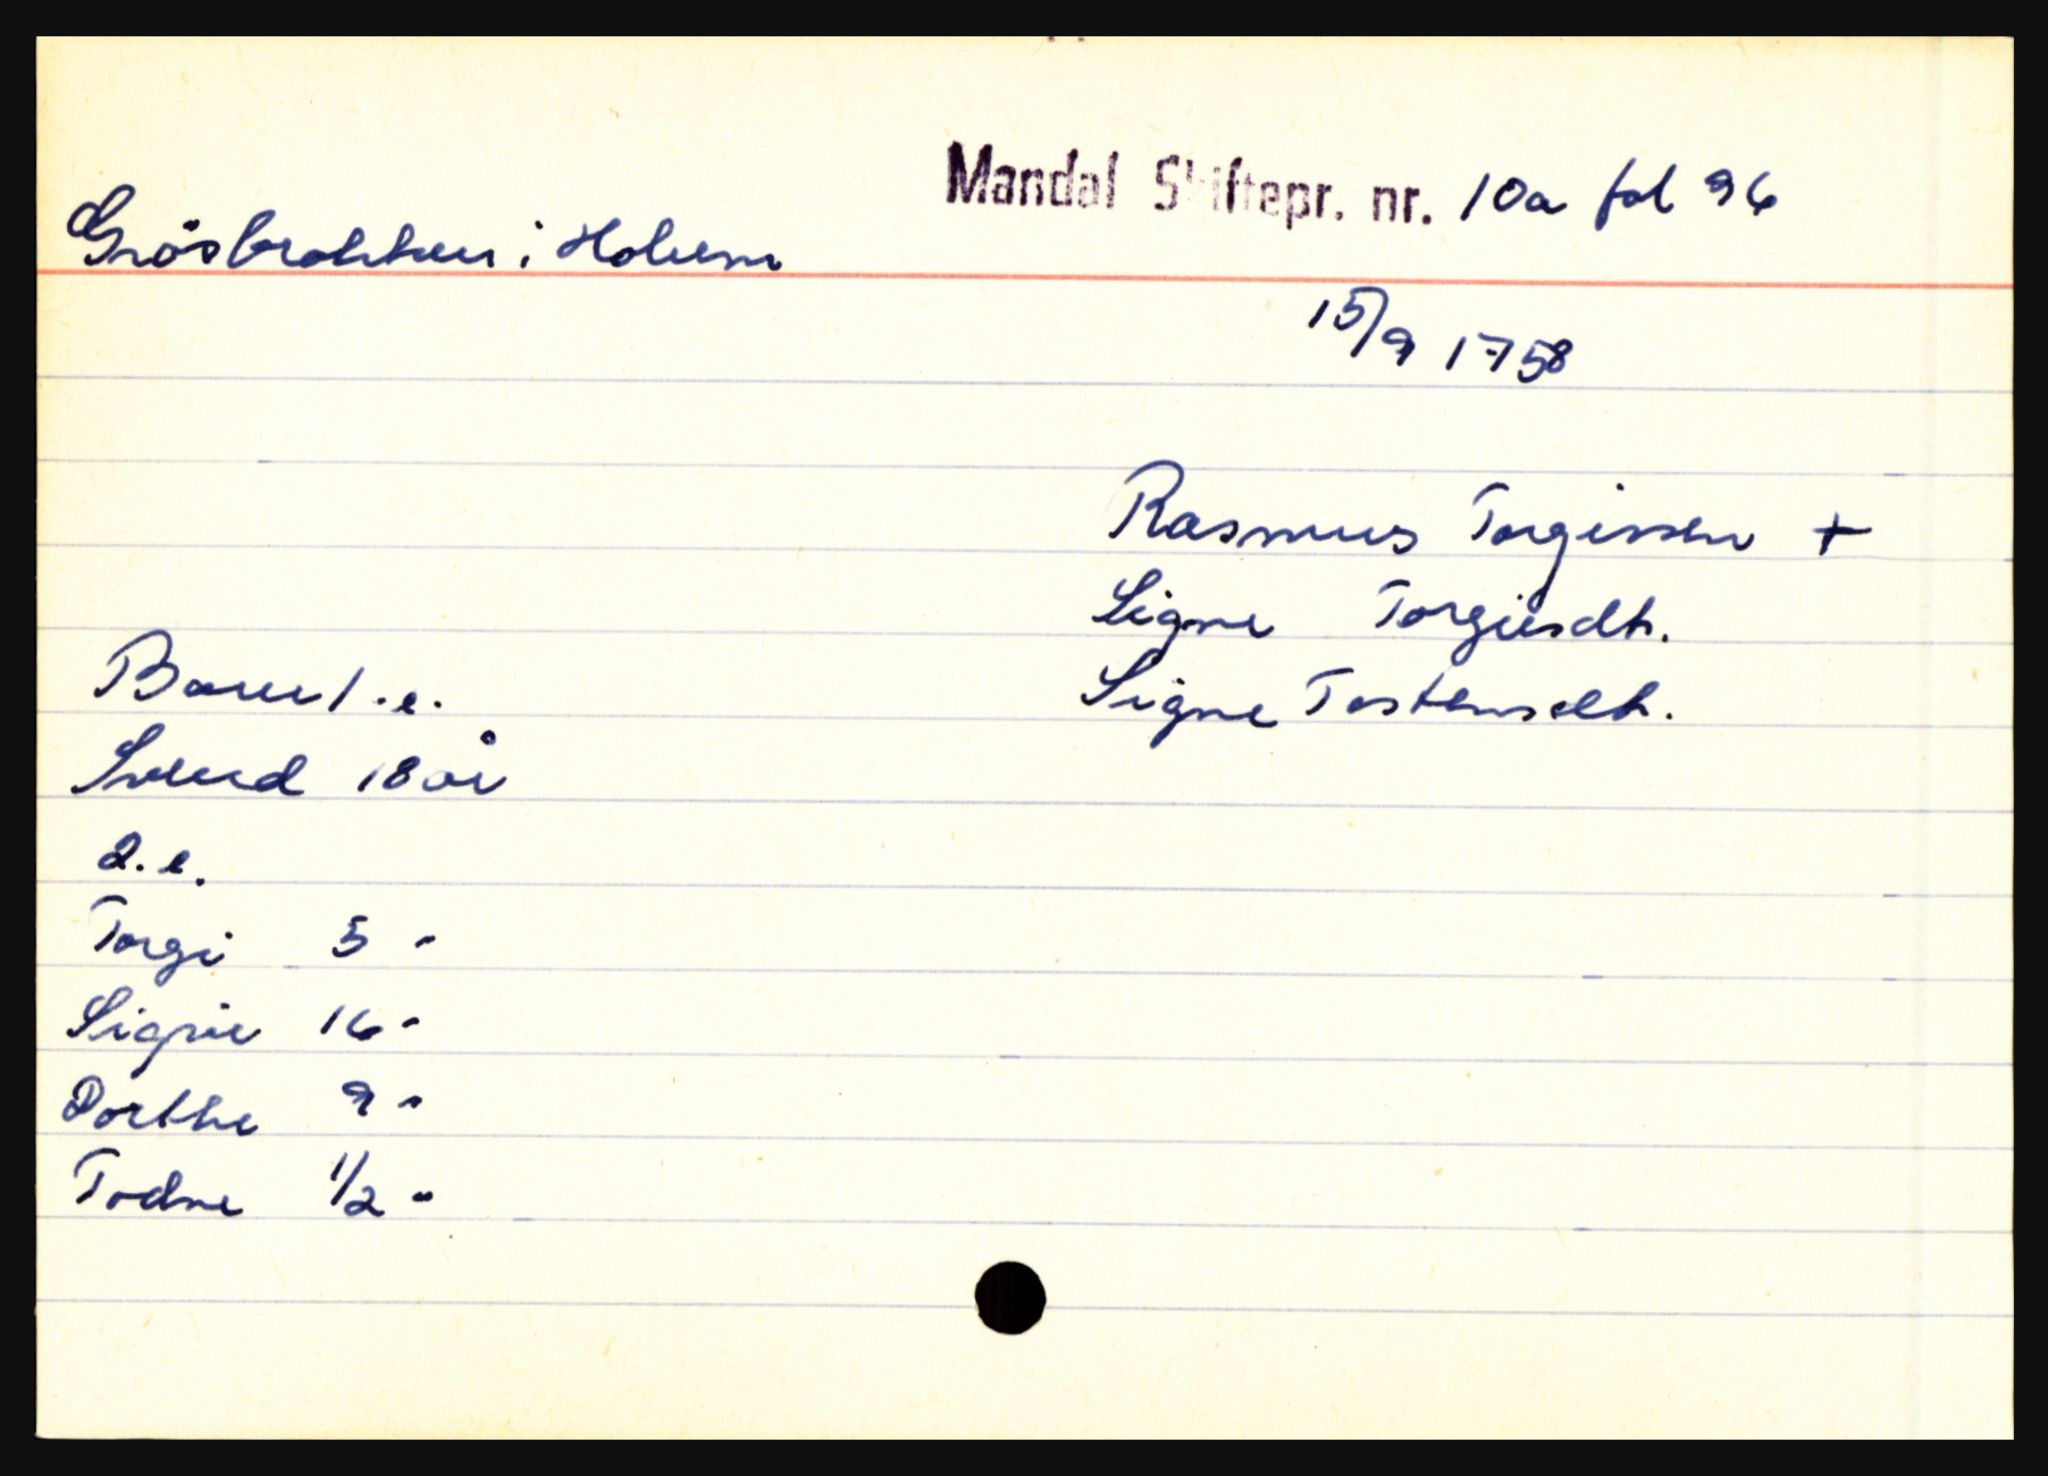 Mandal Skiftepr. nr. 10a fol 96
Gråsbrokken i Holum
15/9 1758
Rasmus Torgissen +
Signe Torgiusdtr.
Barn 1.e.
Signe Tostensdtr.
Svend 18 år
2.e.
Torgi 5 "
Signe 16 "
Dorthe 9 "
Todne 1/2 "